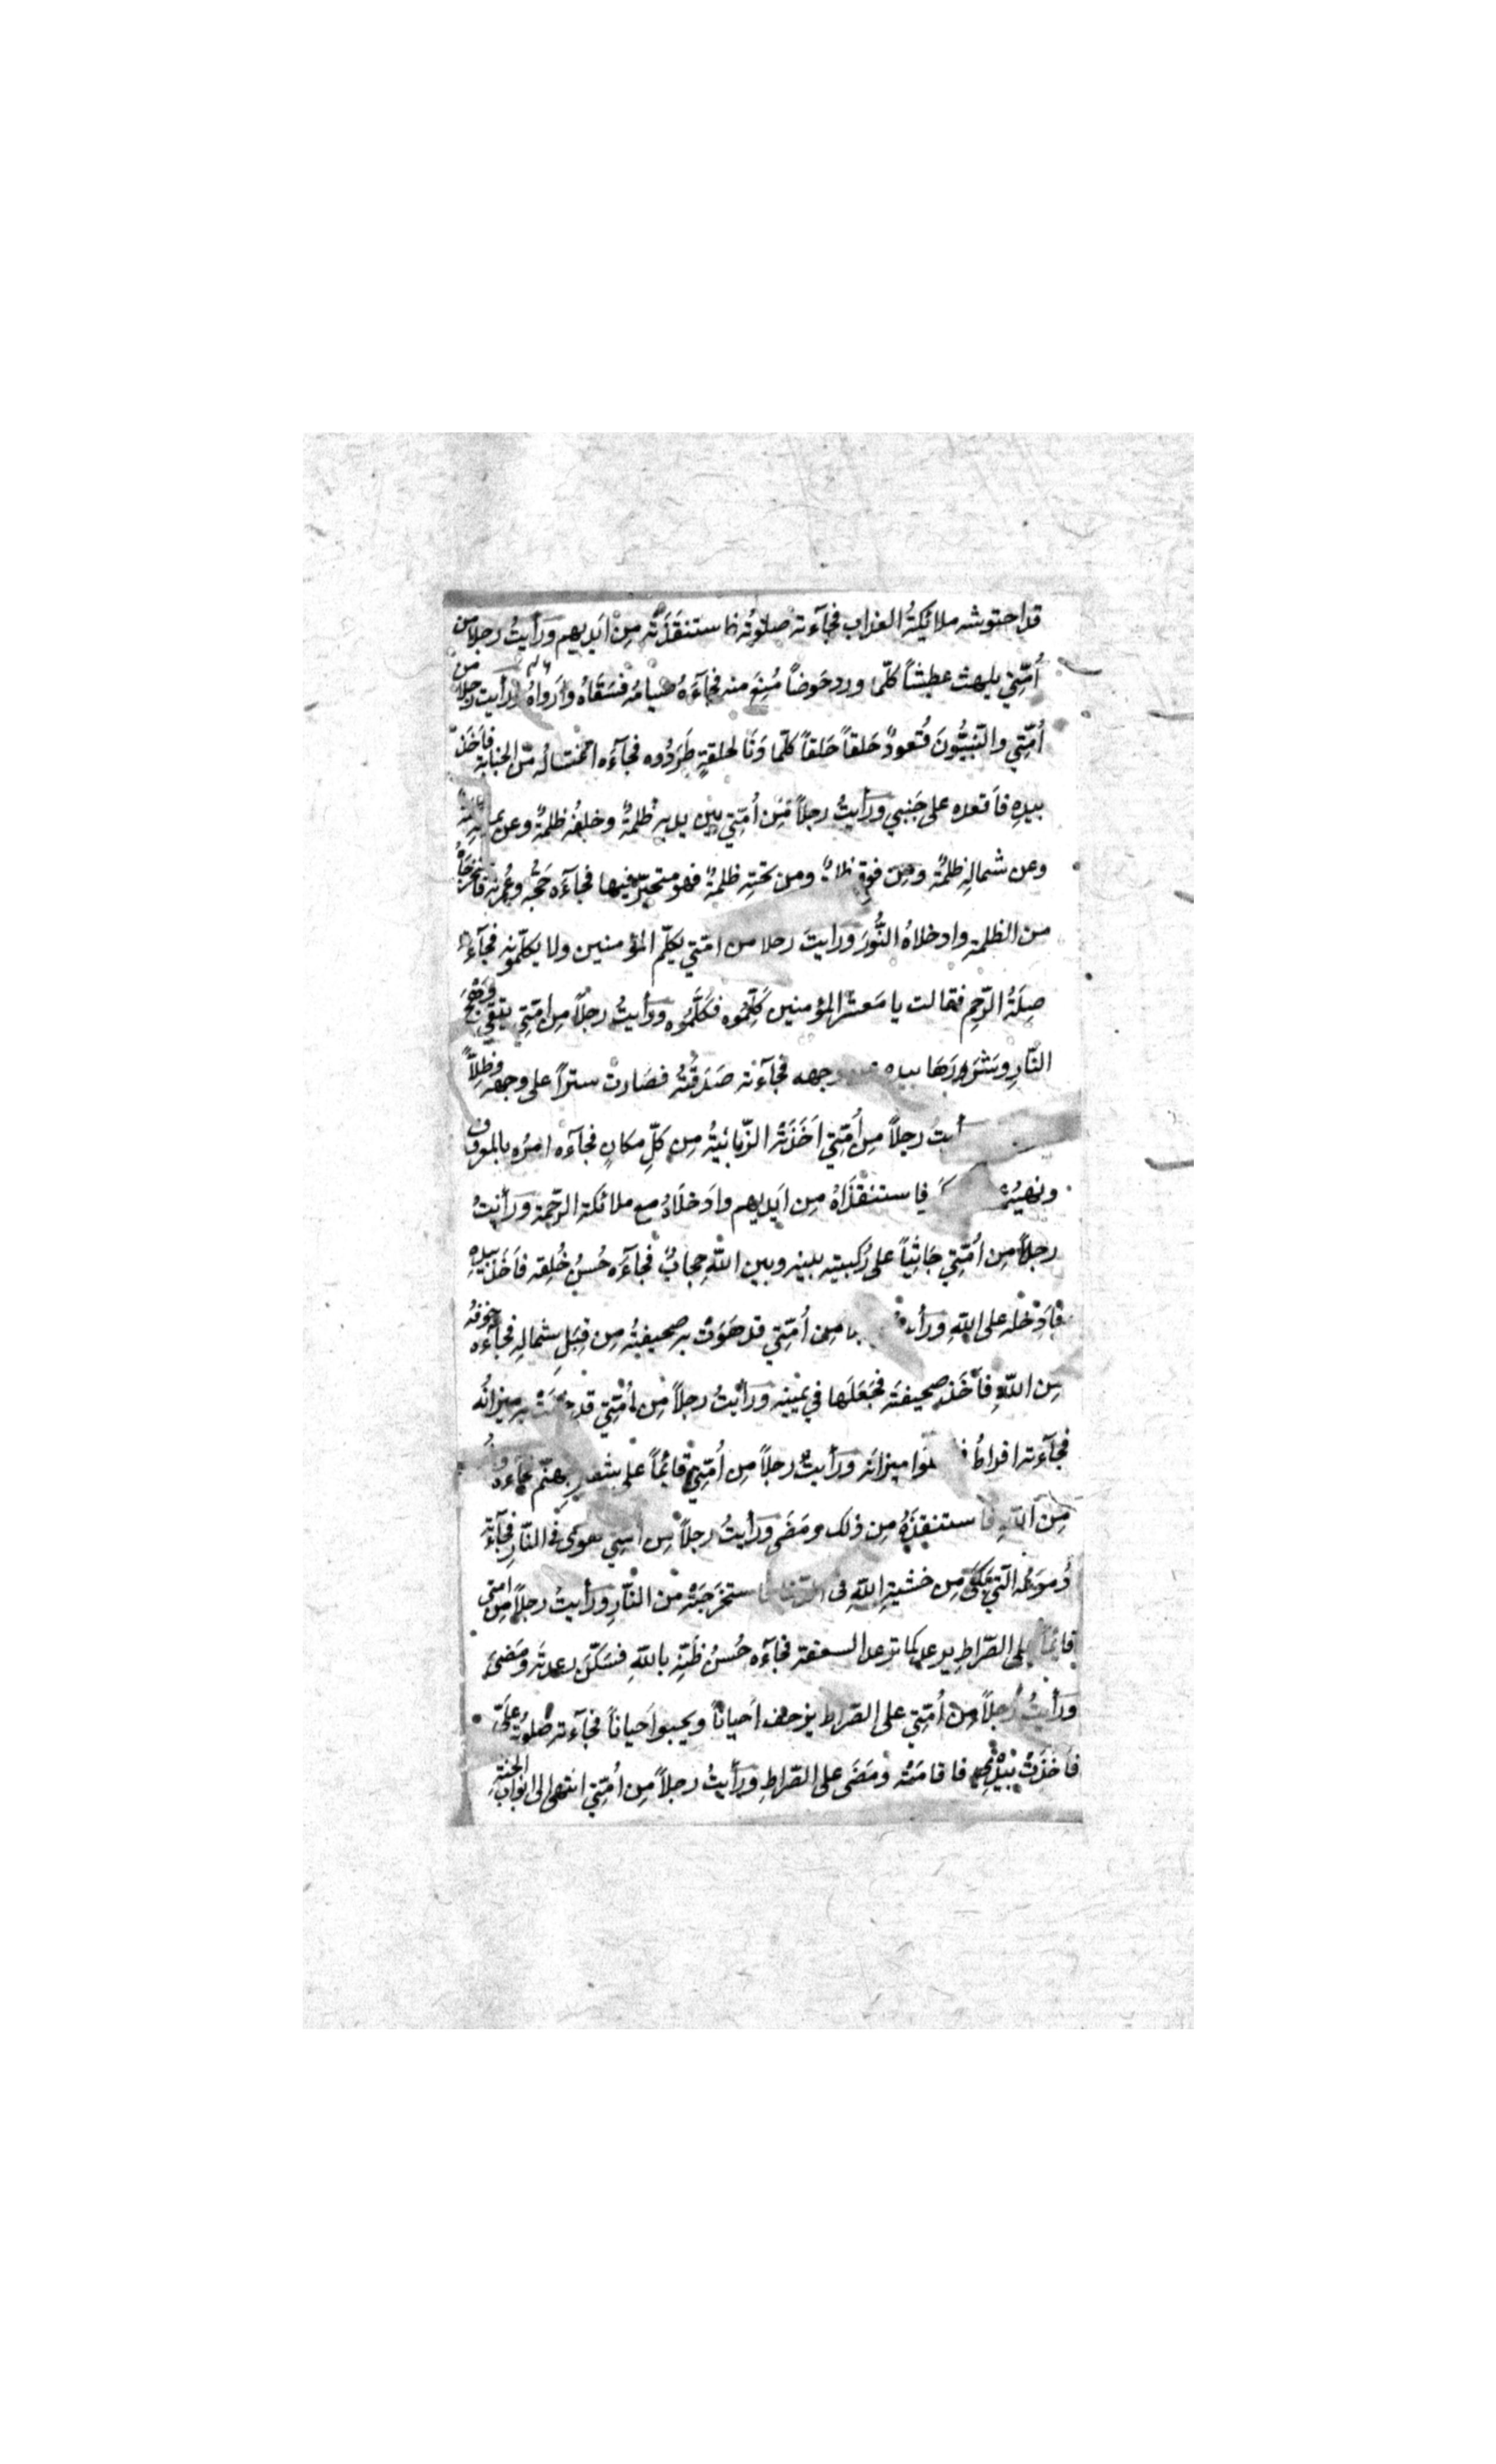 قد احتوشه ملائكةُ العذاب فجآءته صلوتُه فاستنقَذَتْه مِنْ اَيديهم ورأيتُ رجلاً من
اُمّتِي يلهث عطشاً كلّما ورد حَوضاً مُنِعَ منه فجآءَهُ صيامُه فسَقَاهُ وأرواهُ ورأيت رجلاً من
اُمّتِي والنّبيُّونَ قُعودٌ حَلقاً حَلقاً كلّما دَنَا لحلقةٍ طَرَدُوه فجآءَه اغتسالُه من الجنابة فاَخَذَ
بيدِهِ فاَقعده على جَنبي ورأيتُ رجلاً مِّن اُمّتِي بين يديه ظلمةٌ وخلفُه ظلمةٌ وعن يمينه
وعن شمالِه ظلمةٌ ومن فوقه ومن تحتِه ظلمةٌ فهو متحيّر فيها فجآءَه حَجُّه وعُمرته فاخرجَاهُ
من الظلمة وادخلاهُ النُّورَ ورايتُ رجلا من امّتي يكلّم المؤمنين ولا يكلّمونه فجآءته
صِلَةُ الرّحِمِ فقالت يا مَعشر المؤمنين كَلِّمُوه فكَلَّمُوه ورأيتُ رجلاً مِن امّتِي يتقي وَهَجَ
النّارِ وشَرَرَهَا بيده عن وجهه فجآءته صَدَقَتُه فصَارتْ ستراً على وجهه وظِلاًّ
رجلاً مِن اُمّتِي اَخَذَتْهُ الزّبانيةُ مِن كلِّ مكانٍ فجآءه امرُه بالمعروف
ونهيُه فاستنقَذَاهُ مِن اَيديهم واَدخلَاهُ مع ملائكة الرّحمة ورأيتُ
رجلاً مِن اُمّتِي جَاثِياً على رُكبتيه بينه وبين اللهِ حجابٌ فجآءَه حُسنُ خُلقِه فاَخَذَ بيدِهِ
فاَدخله على اللهِ مِن اُمّتِي قد هَوَتْ به صحيفتُه مِن قِبَلِ شمالِه فجآءَه خوفُه
مِن اللهِ فاَخَذَ صحيفتَه فجَعَلَها في يمينِه ورأيتُ رجلاً مِن اُمّتِي قد ميزانُه
فجآءته افراطُه ميزانَه ورأيتُ رجلاً مِن اُمّتِي قائماً على شفير جهنّم فجآءه
مِن اللهِ فاستنقذَهُ مِن ذلك ومَضَى ورأيتُ رجلاً مِن امّتِي هوى في النّارِ فجآءته
دُموعُه الّتي بَكَى مِن خشيةِ اللهِ في الدّنيا فاستخرَجَتْه من النّارِ ورأيتُ رجلاً مِن امتي
قائماً على الصّراطِ يرعد كما ترعد السعفة فجآءَه حُسنُ ظَنِّه باللهِ فسَكّنَ رعدتَه ومَضى
ورأيتُ رجلاً مِن اُمّتِي على الصّراط يزحف اَحياناً ويحبوا اَحياناً فجآءته صلوتُه عَلَيَّ
فاَخَذَتْ بيدِهِ فاقامَتْه ومَضَى على الصّراطِ ورأيتُ رجلاً مِن اُمّتِي انتهى الى ابوابِ الجنّةِ